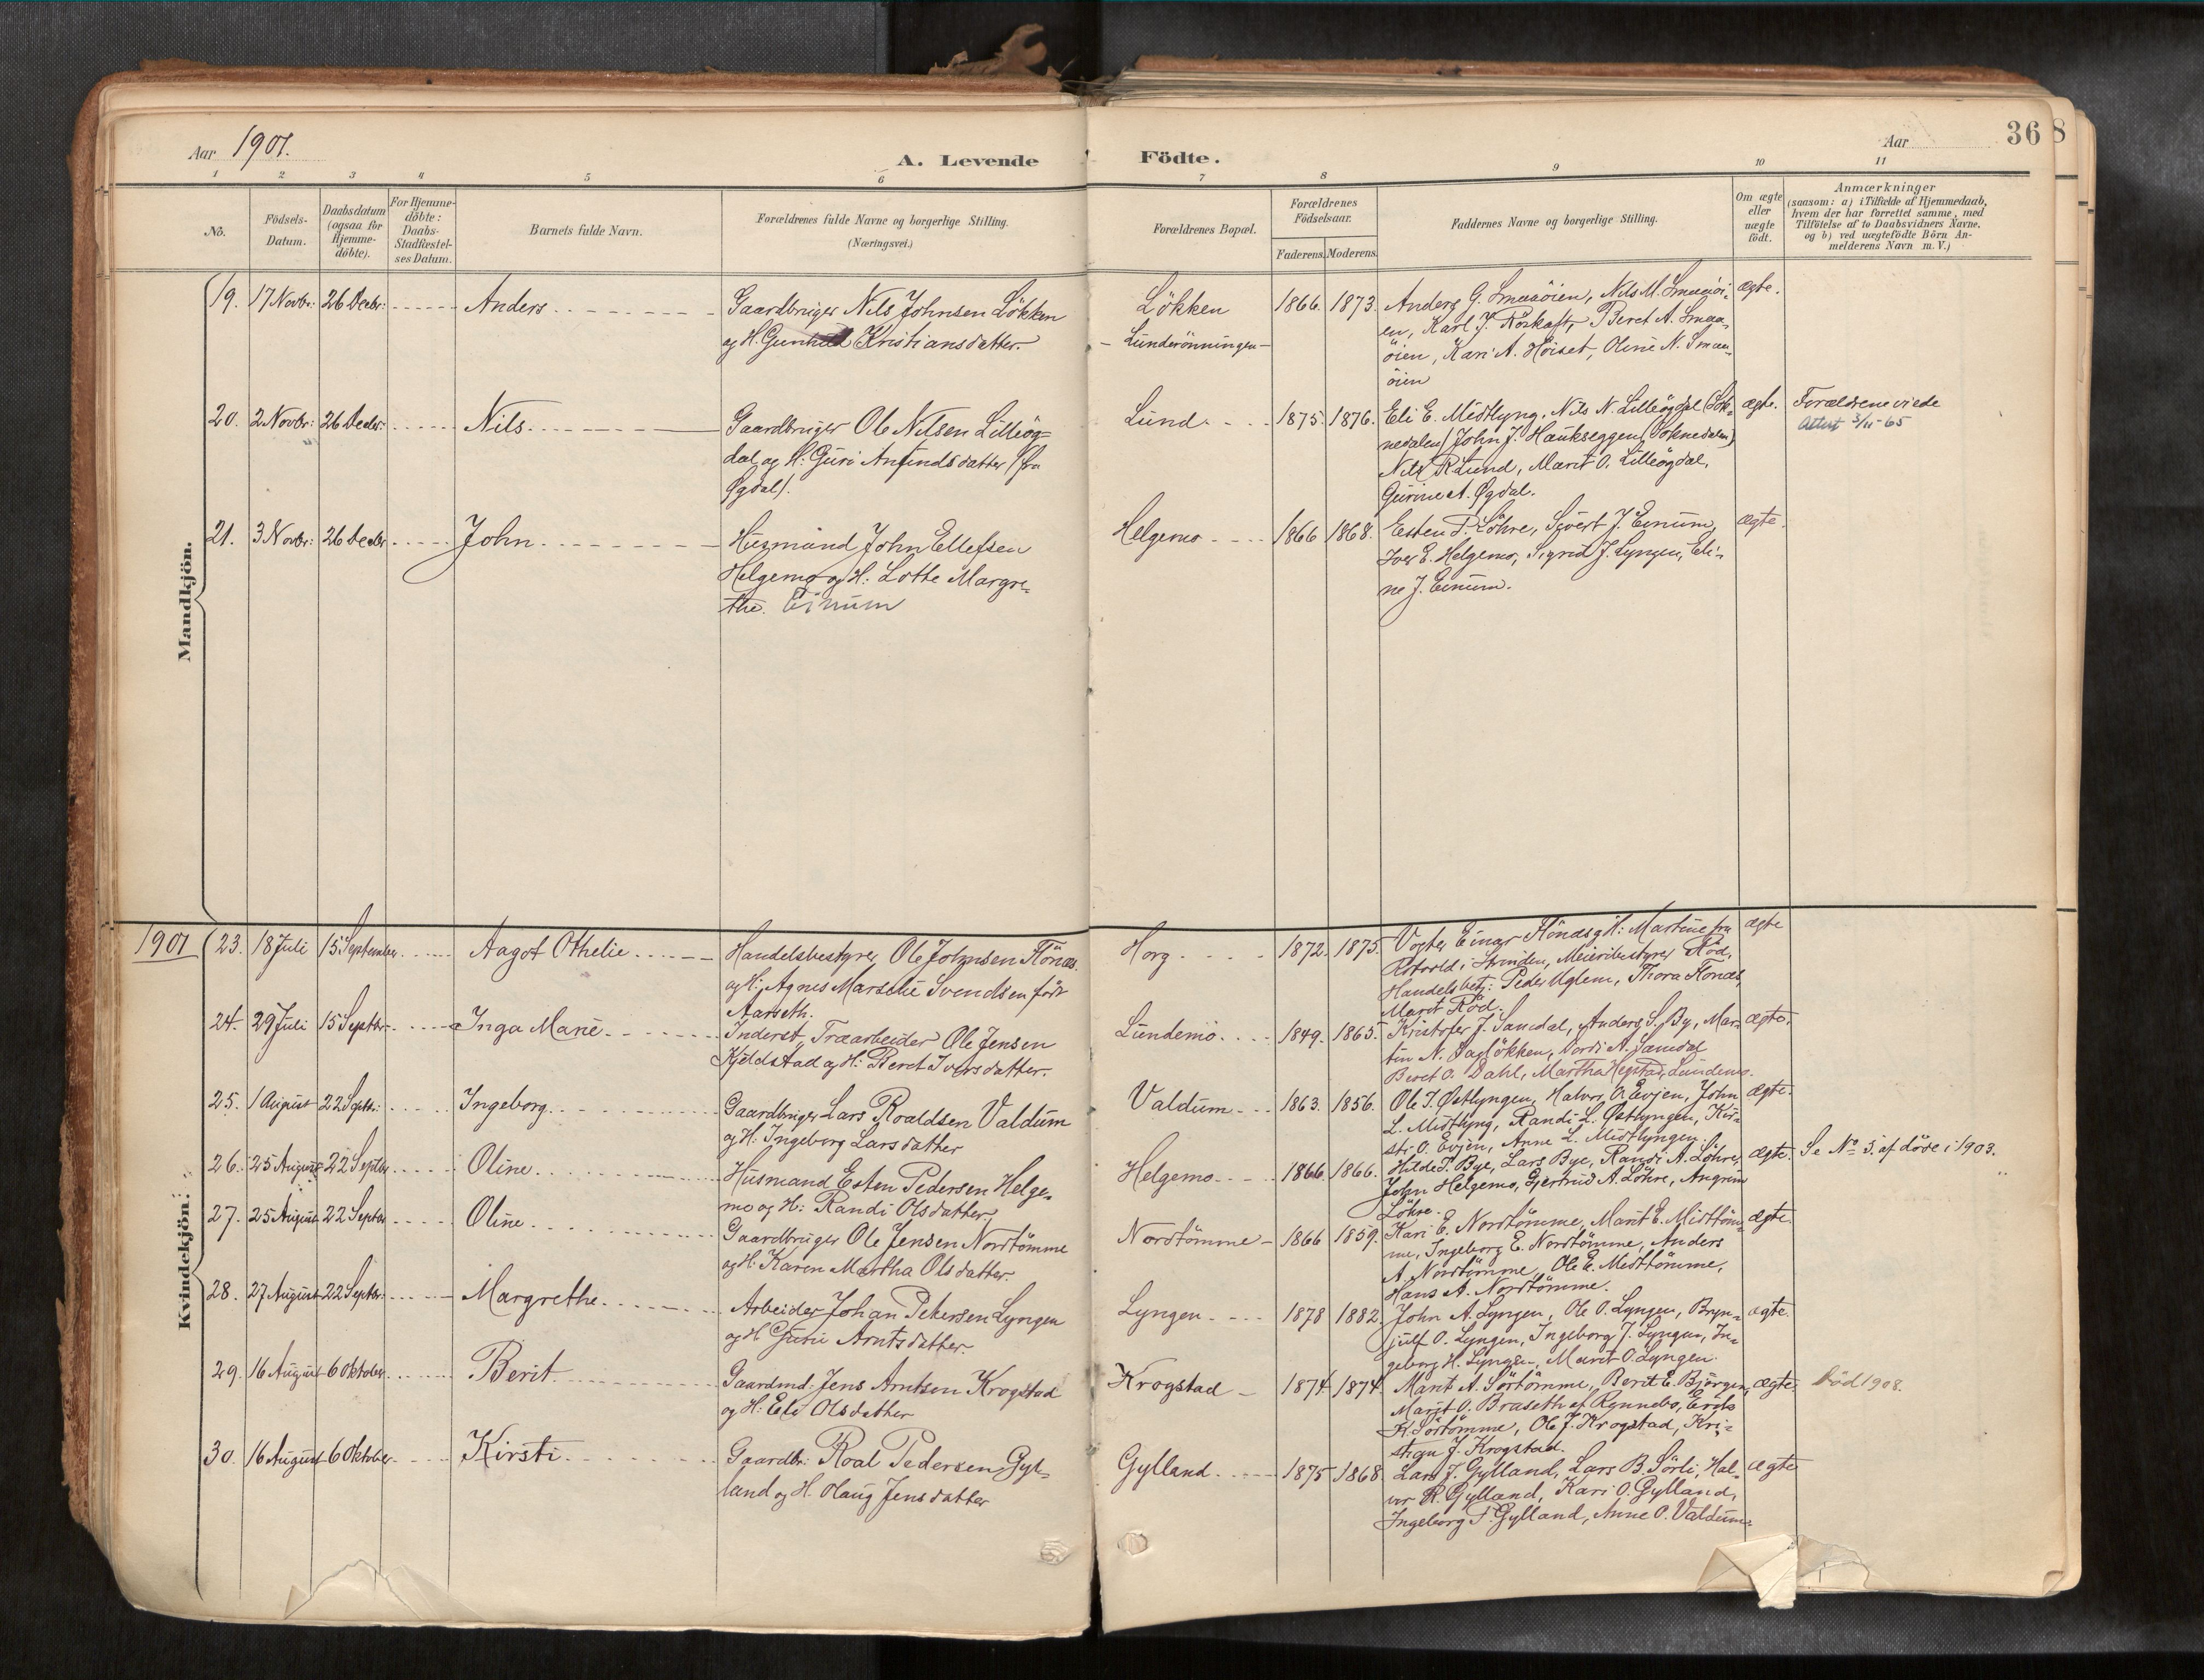 Aar 1901.
A. Levende Födte.
Aar
36
8
1 2 3 4 5 6 7 8 9 10 11
No.
Födsels-
Datum.
Daabsdatum
(ogsaa for
Hjemme-
döbte).
For Hjemme-
döbte:
Daabs-
Stadfæstel-
ses Datum.
Barnets fulde Navn.
Forældrenes fulde Navne og borgerlige Stilling.
(Næringsvei.)
Forældrenes Bopæl.
Forældrenes
Födselsaar.
Faderens. Moderens.
Faddernes Navne og borgerlige Stilling.
Om ægte
eller
uægte
födt.
Anmærkninger
(saasom: a) i Tilfælde af Hjemmedaab,
hvem der har forrettet samme, med
Tilföielse af to Daabsvidners Navne,
og b) ved uægtefödte Börn An-
melderens Navn m. V.)
Mandkjön.
19. 17 Novbr: 26 Decbr: Anders
Gaardbruger Nils Johnsen Lökken
og H. Gunhild Kristiansdatter.
Lökken
- Lunderönningen -
1866. 1873.
Anders G. Smaaöien, Nils M. Smaaöi-
en, Karl J. Röskaft, Beret A. Smaa-
öien, Kari A. Höiset, Oline N. Smaa-
öien
ægte.
20. 2 Novbr: 26 Decbr: Nils
Gaardbruger Ole Nilsen Lilleög-
dal og H: Guri Anfindsdatter (fra
Øgdal).
Lund
1875. 1876.
Eli E. Midtlyng, Nils N. Lilleögdal (Sok-
nedalen) John J. Haukseggen (Soknedalen)
Nils R Lund, Marit O. Lilleögdal,
Gurine A. Øgdal.
ægte.
Forældrene viede
Attest 3/11-65
21. 3 Novbr: 26 Decbr John
Husmand John Ellefsen
Helgemo og H: Lotte Margre-
the. Einum
Helgemo
1866 1868.
Esten P. Löhre, Sivert J. Einum,
Iver E. Helgemo, Sigrid J. Lyngen, Eli-
ne J. Einum.
ægte.
Kvindekjön.
1901
23. 18 Juli 15 September Aagot Othelie
Handelsbestyrer Ole Johnsen Flönæs
og H: Agnes Marselie Svendsen födt
Aarseth.
Horg
1872. 1875.
Vogter Einar Flönæs og H: Martine fra
Rotvold i Strinden, Meieribestyrer Röd,
Handelsbetj: Peder Uglem, Thora Flönæs,
Marit Röd.
ægte
24. 29 Juli 15 Septbr. Inga Marie
Inderst, Træarbeider Ole Jensen
Kjeldstad og H: Beret Iversdatter.
Lundemo
1849. 1865.
Kristofer J. Samdal, Anders S. By, Mar-
tin N. Dagslökken, Nordi A. Samdal
Beret O. Dahl, Martha Hegstad, Lundemo.
ægte.
25. 1 August 22 Septbr: Ingeborg
Gaardbruger Lars Roaldsen Valdum
og H: Ingeborg Larsdatter
Valdum
1863. 1856.
Ole I. Østlyngen, Halvor O. Evjen, John
L. Midtlyng, Randi L. Østlyngen, Kir-
sti O. Evjen, Anne L. Midtlyngen.
ægte.
26. 25 August 22 Septbr. Oline
Husmand Esten Pedersen Helge-
mo og H: Randi Olsdatter
Helgemo
1866. 1866.
Hilde T. Bye, Lars Bye, Randi A. Löhre,
John Helgemo, Gjertrud A. Löhre, Angrim
Löhre.
ægte.
Se No 5. af döde i 1903.
27. 25 August 22 Septbr Oline
Gaardbruger Ole Jensen Nordtömme
og H: Karen Martha Olsdatter.
Nordtömme
1866 1859.
Kari E. Nordtömme, Marit E. Midttöm-
me, Ingeborg E. Nordtömme, Anders
A. Nordtömme, Ole E. Midttömme,
Hans A. Nordtömme.
ægte.
28. 27 August 22 Septbr. Margrethe
Arbeider Johan Petersen Lyngen
og H Guru Arntsdatter.
Lyngen
1878 1882.
John A. Lyngen, Ole O. Lyngen, Bryn-
julf O. Lyngen, Ingeborg J. Lyngen, In-
geborg H. Lyngen, Marit O. Lyngen.
ægte.
29. 16 August 6 Oktober Berit
Gaardmd. Jens Arntsen Krogstad
og H: Eli Olsdatter
Krogstad
1874 1874.
Marit A. Sörtömme, Berit E. Björgen,
Marit O. Braseth af Rennebo, Erik
K. Sörtömme, Ole J. Krogstad, Kri-
stian J. Krogstad.
ægte.
Död 1908.
30. 16 August 6 Oktober Kirsti
Gaardbr: Roal Pedersen Gyl-
land og H. Olaug Jensdatter
Gylland
1875 1868
Lars J. Gylland, Lars B. Sörli, Hal-
vor R. Gylland, Kari O. Gylland,
Ingeborg P. Gylland, Anne O. Valdum.
ægte